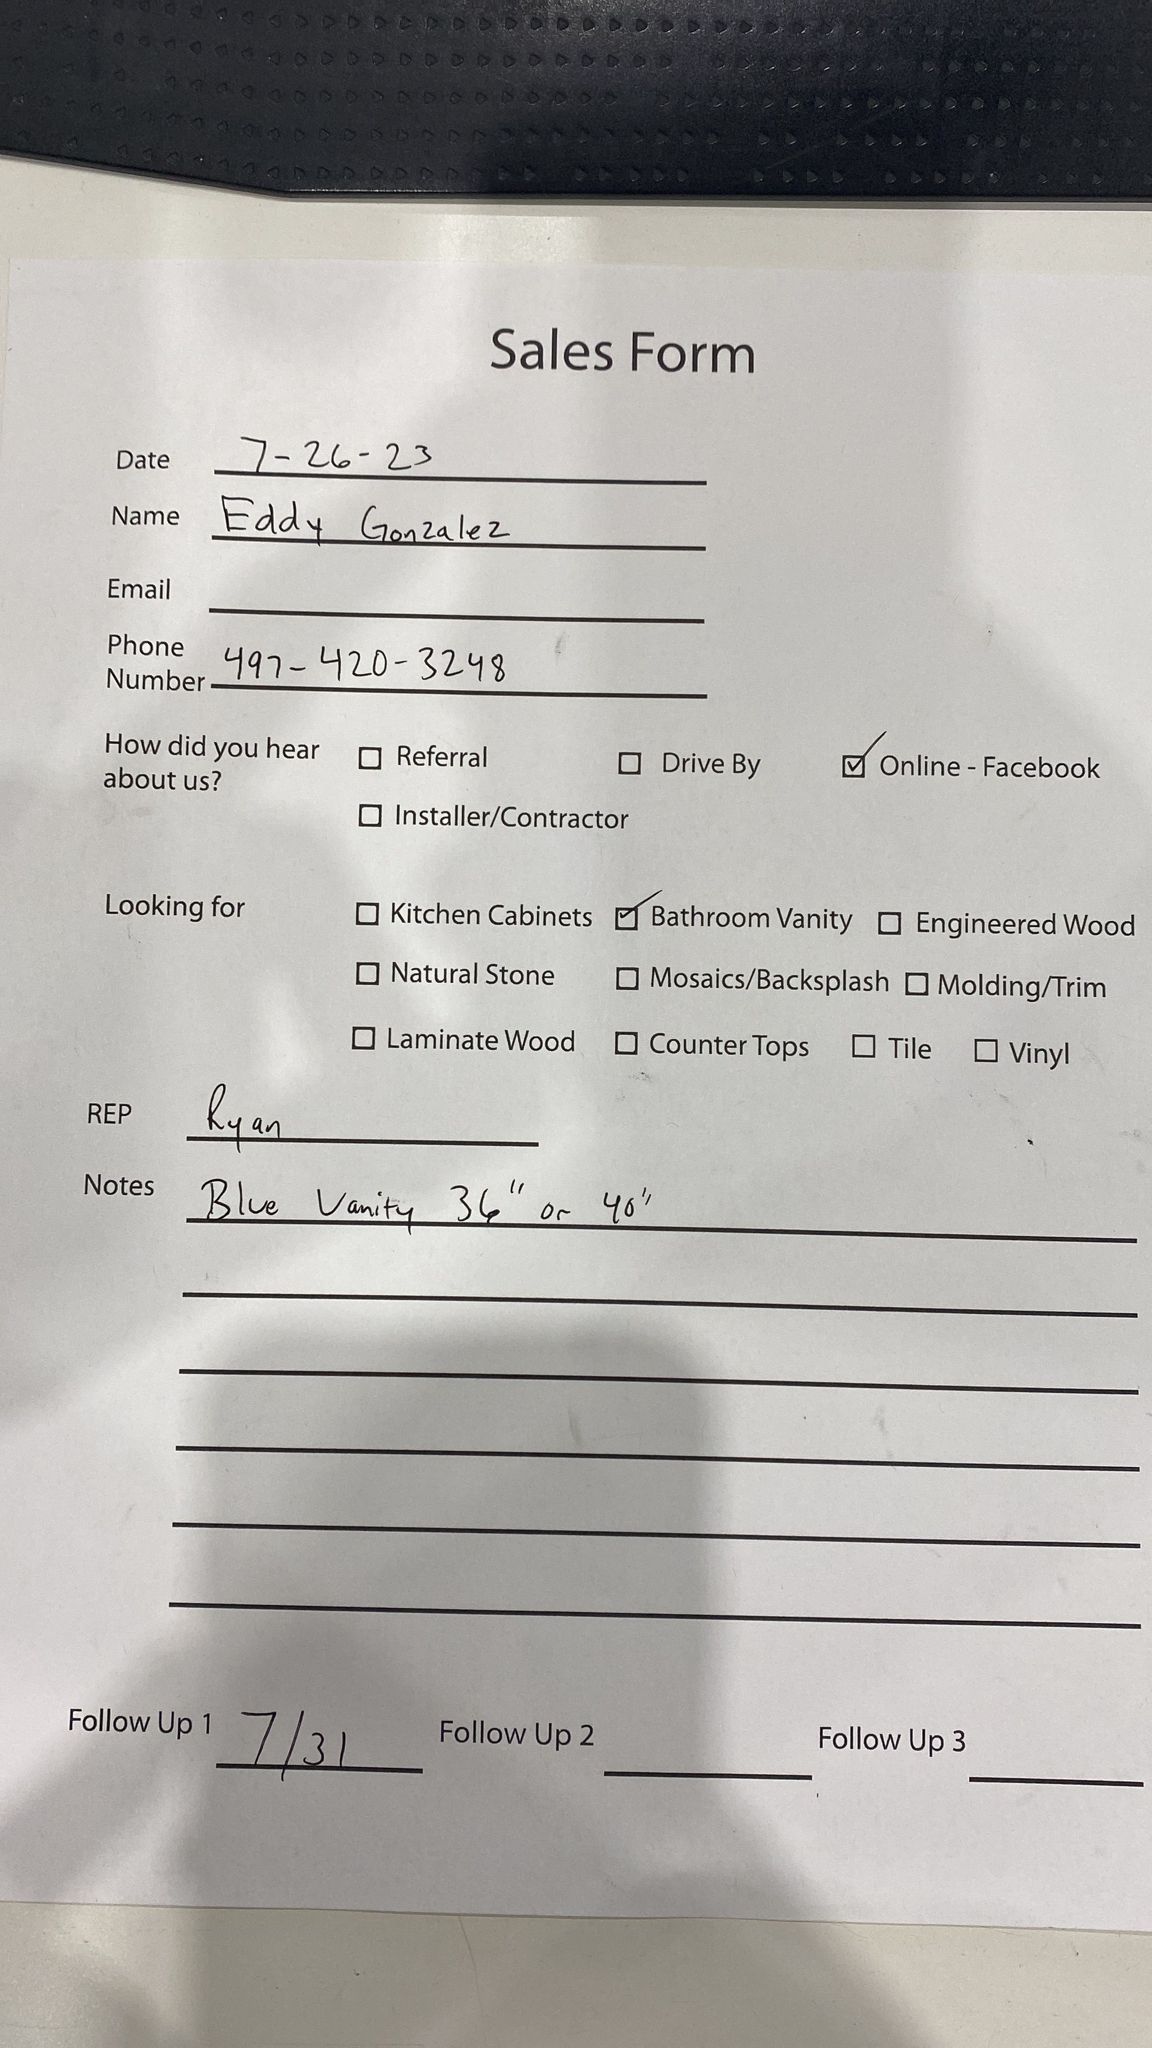 Sales Form
Date 7-26-23
Name Eddy Gonzalez
Email
Phone Number 497-420-3248
How did you hear about us? ☐ Referral ☐ Drive By ☑ Online - Facebook
☐ Installer/Contractor
Looking for ☐ Kitchen Cabinets ☑ Bathroom Vanity ☐ Engineered Wood
☐ Natural Stone ☐ Mosaics/Backsplash ☐ Molding/Trim
☐ Laminate Wood ☐ Counter Tops ☐ Tile ☐ Vinyl
REP Ryan
Notes Blue Vanity 36" or 40"
Follow Up 1 7/31 Follow Up 2 Follow Up 3